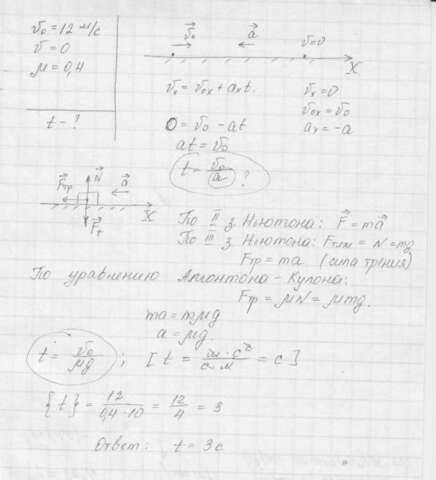 v₀ = 12 м/с
v = 0
μ = 0,4
t - ?
v⃗₀ a⃗ v=0
X
vₓ = v₀ₓ + aₓt.
vₓ = 0
0 = v₀ - at
v₀ₓ = v₀
at = v₀
aₓ = -a
t = v₀/a ?
N⃗
F⃗тр a⃗
X
F⃗т
По II з. Ньютона: F⃗ = ma⃗
По III з. Ньютона: Fтяж = N = mg
Fтр = ma (сила трения)
По уравнению Амонтона-Кулона:
Fтр = μN = μmg.
ma = mμg
a = μg
t = v₀/μg ; [ t = м · с²/с · м = с ]
{t} = 12/0,4·10 = 12/4 = 3
Ответ: t = 3с